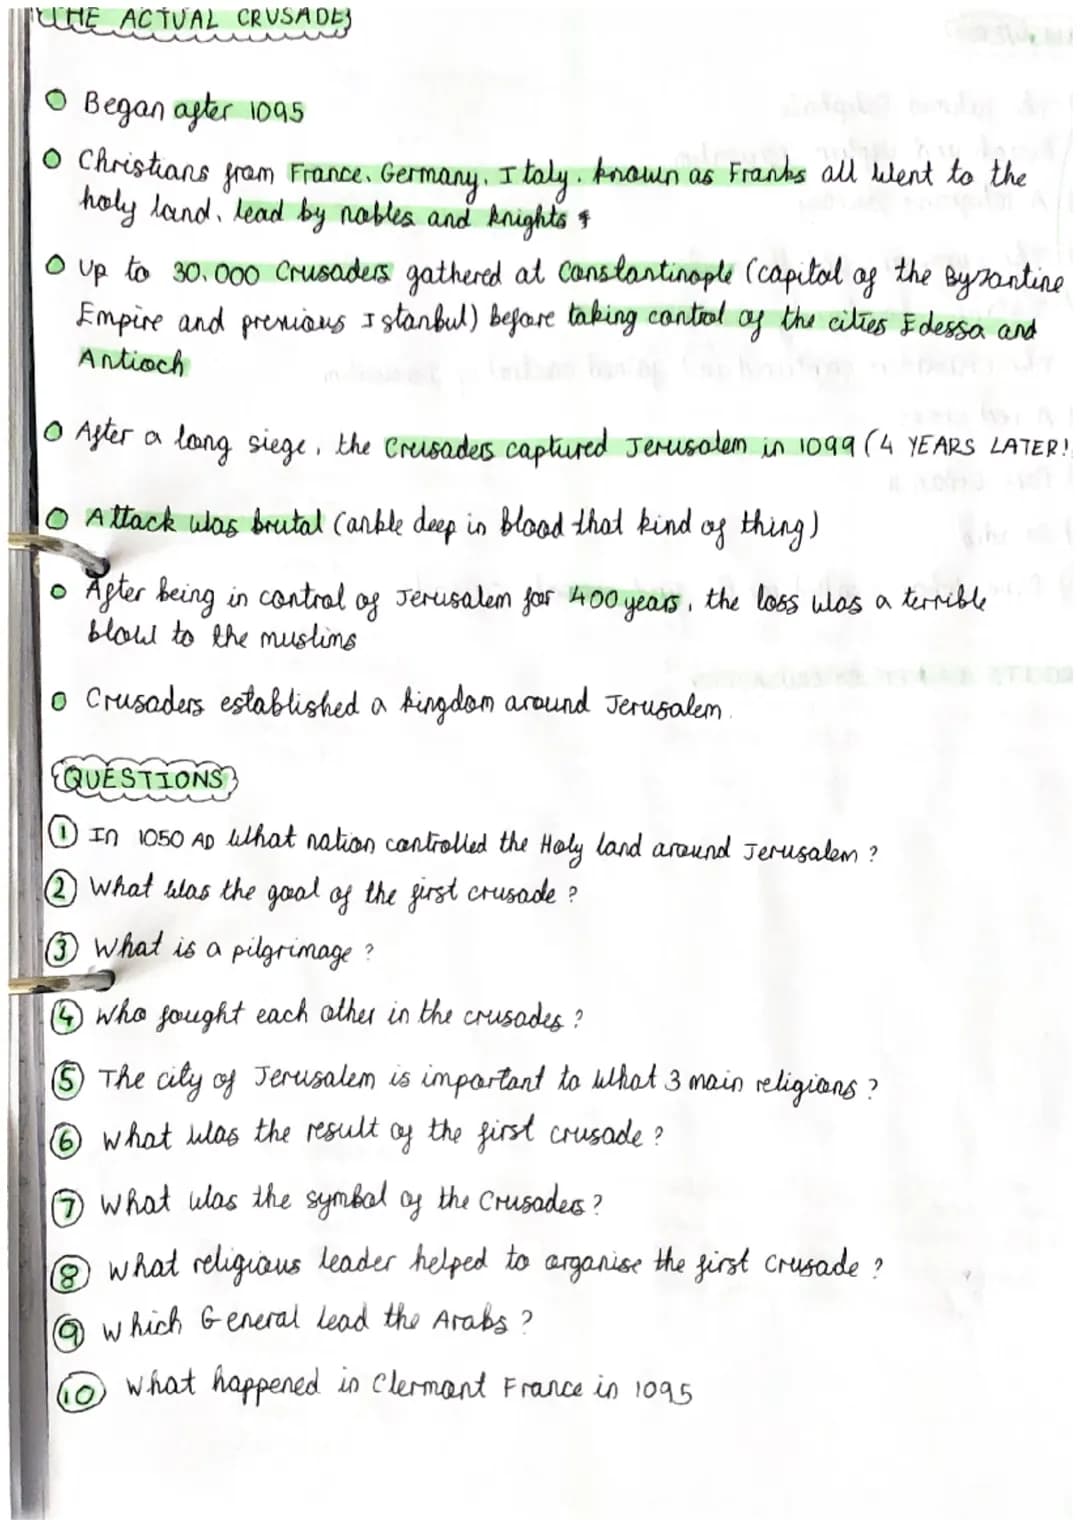 THE ACTUAL CRUSADES
Began after 1095
Christians from France, Germany, Italy, known as Franks all went to the
holy land, lead by nobles and knights
Up to 30,000 Crusaders gathered at Constantinople (capital of the Byzantine
Empire and previous Istanbul) before taking control of the cities Edessa and
Antioch
After a long siege, the Crusaders captured Jerusalem in 1099 (4 YEARS LATER!
Attack was brutal (ankle deep in blood that kind of thing)
After being in control of Jerusalem for 400 years, the loss was a terrible
blow to the muslims
Crusaders established a kingdom around Jerusalem.
QUESTIONS
1 In 1050 AD what nation controlled the Holy land around Jerusalem?
2 What was the goal of the first crusade?
3 What is a pilgrimage?
4 Who fought each other in the crusades?
5 The city of Jerusalem is important to what 3 main religions?
6 What was the result of the first crusade?
7 What was the symbol of the Crusaders?
8 What religious leader helped to organise the first Crusade?
9 Which General lead the Arabs?
10 What happened in Clermont France in 1095